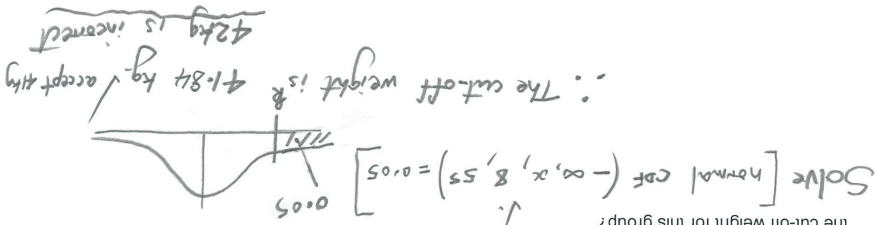 the cut-off weight for this group?
Solve [normal CDF (-∞, x, 8, 55) = 0.05]
0.05
k
∴ The cut-off weight is 41.84 kg. accept 41kg
42kg is incorrect